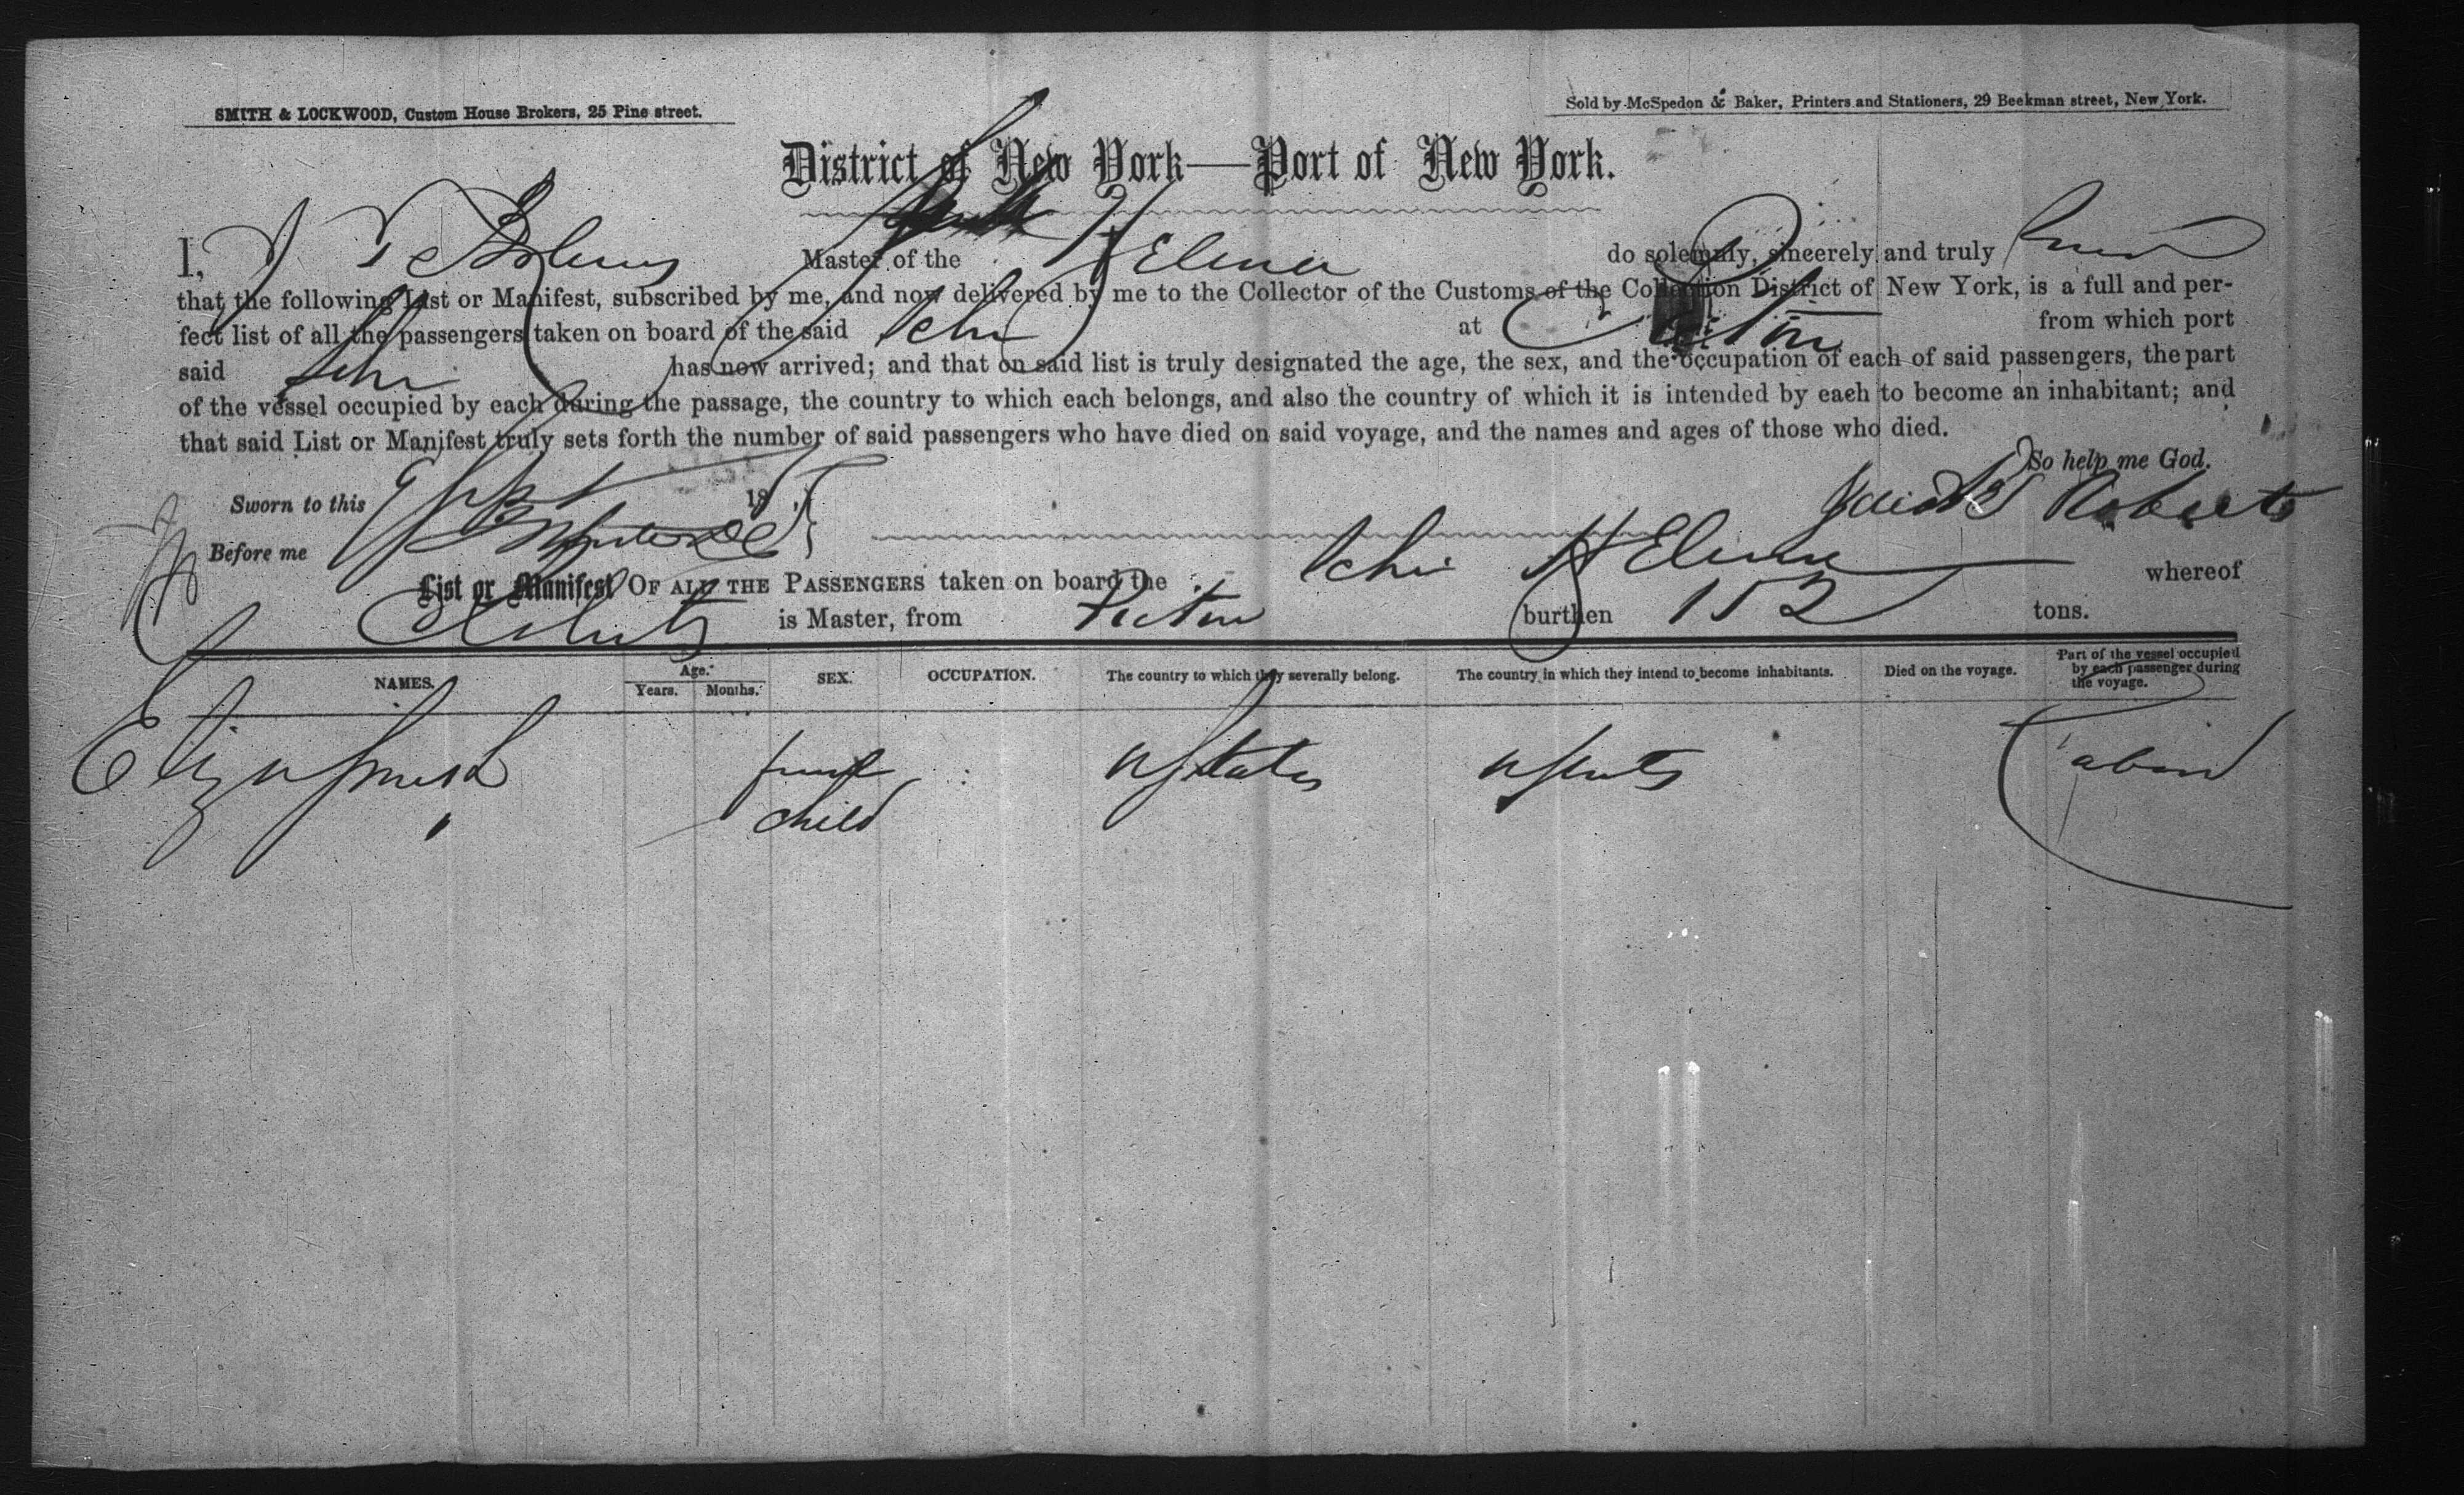 SMITH & LOCKWOOD, Custom House Brokers, 25 Pine street.
Sold by McSpedon & Baker, Printers and Stationers, 29 Beekman street, New York.
District of New York—Port of New York.
I, Master of the H Elmer do solemnly, sincerely and truly
that the following List or Manifest, subscribed by me, and now delivered by me to the Collector of the Customs of the Collection District of New York, is a full and per-
fect list of all the passengers taken on board of the said Schr at Picton from which port
said Schr has now arrived; and that on said list is truly designated the age, the sex, and the occupation of each of said passengers, the part
of the vessel occupied by each during the passage, the country to which each belongs, and also the country of which it is intended by each to become an inhabitant; and
that said List or Manifest truly sets forth the number of said passengers who have died on said voyage, and the names and ages of those who died.
So help me God.
Sworn to this 9 Sept 18
Roberts
Before me
List or Manifest OF ALL THE PASSENGERS taken on board the Schr H Elmer whereof
Roberts is Master, from Picton burthen 152 tons.
NAMES. Age. Years. Months. SEX. OCCUPATION. The country to which they severally belong. The country in which they intend to become inhabitants. Died on the voyage. Part of the vessel occupied by each passenger during the voyage.
Eliza Smith U States U States Cabin
child